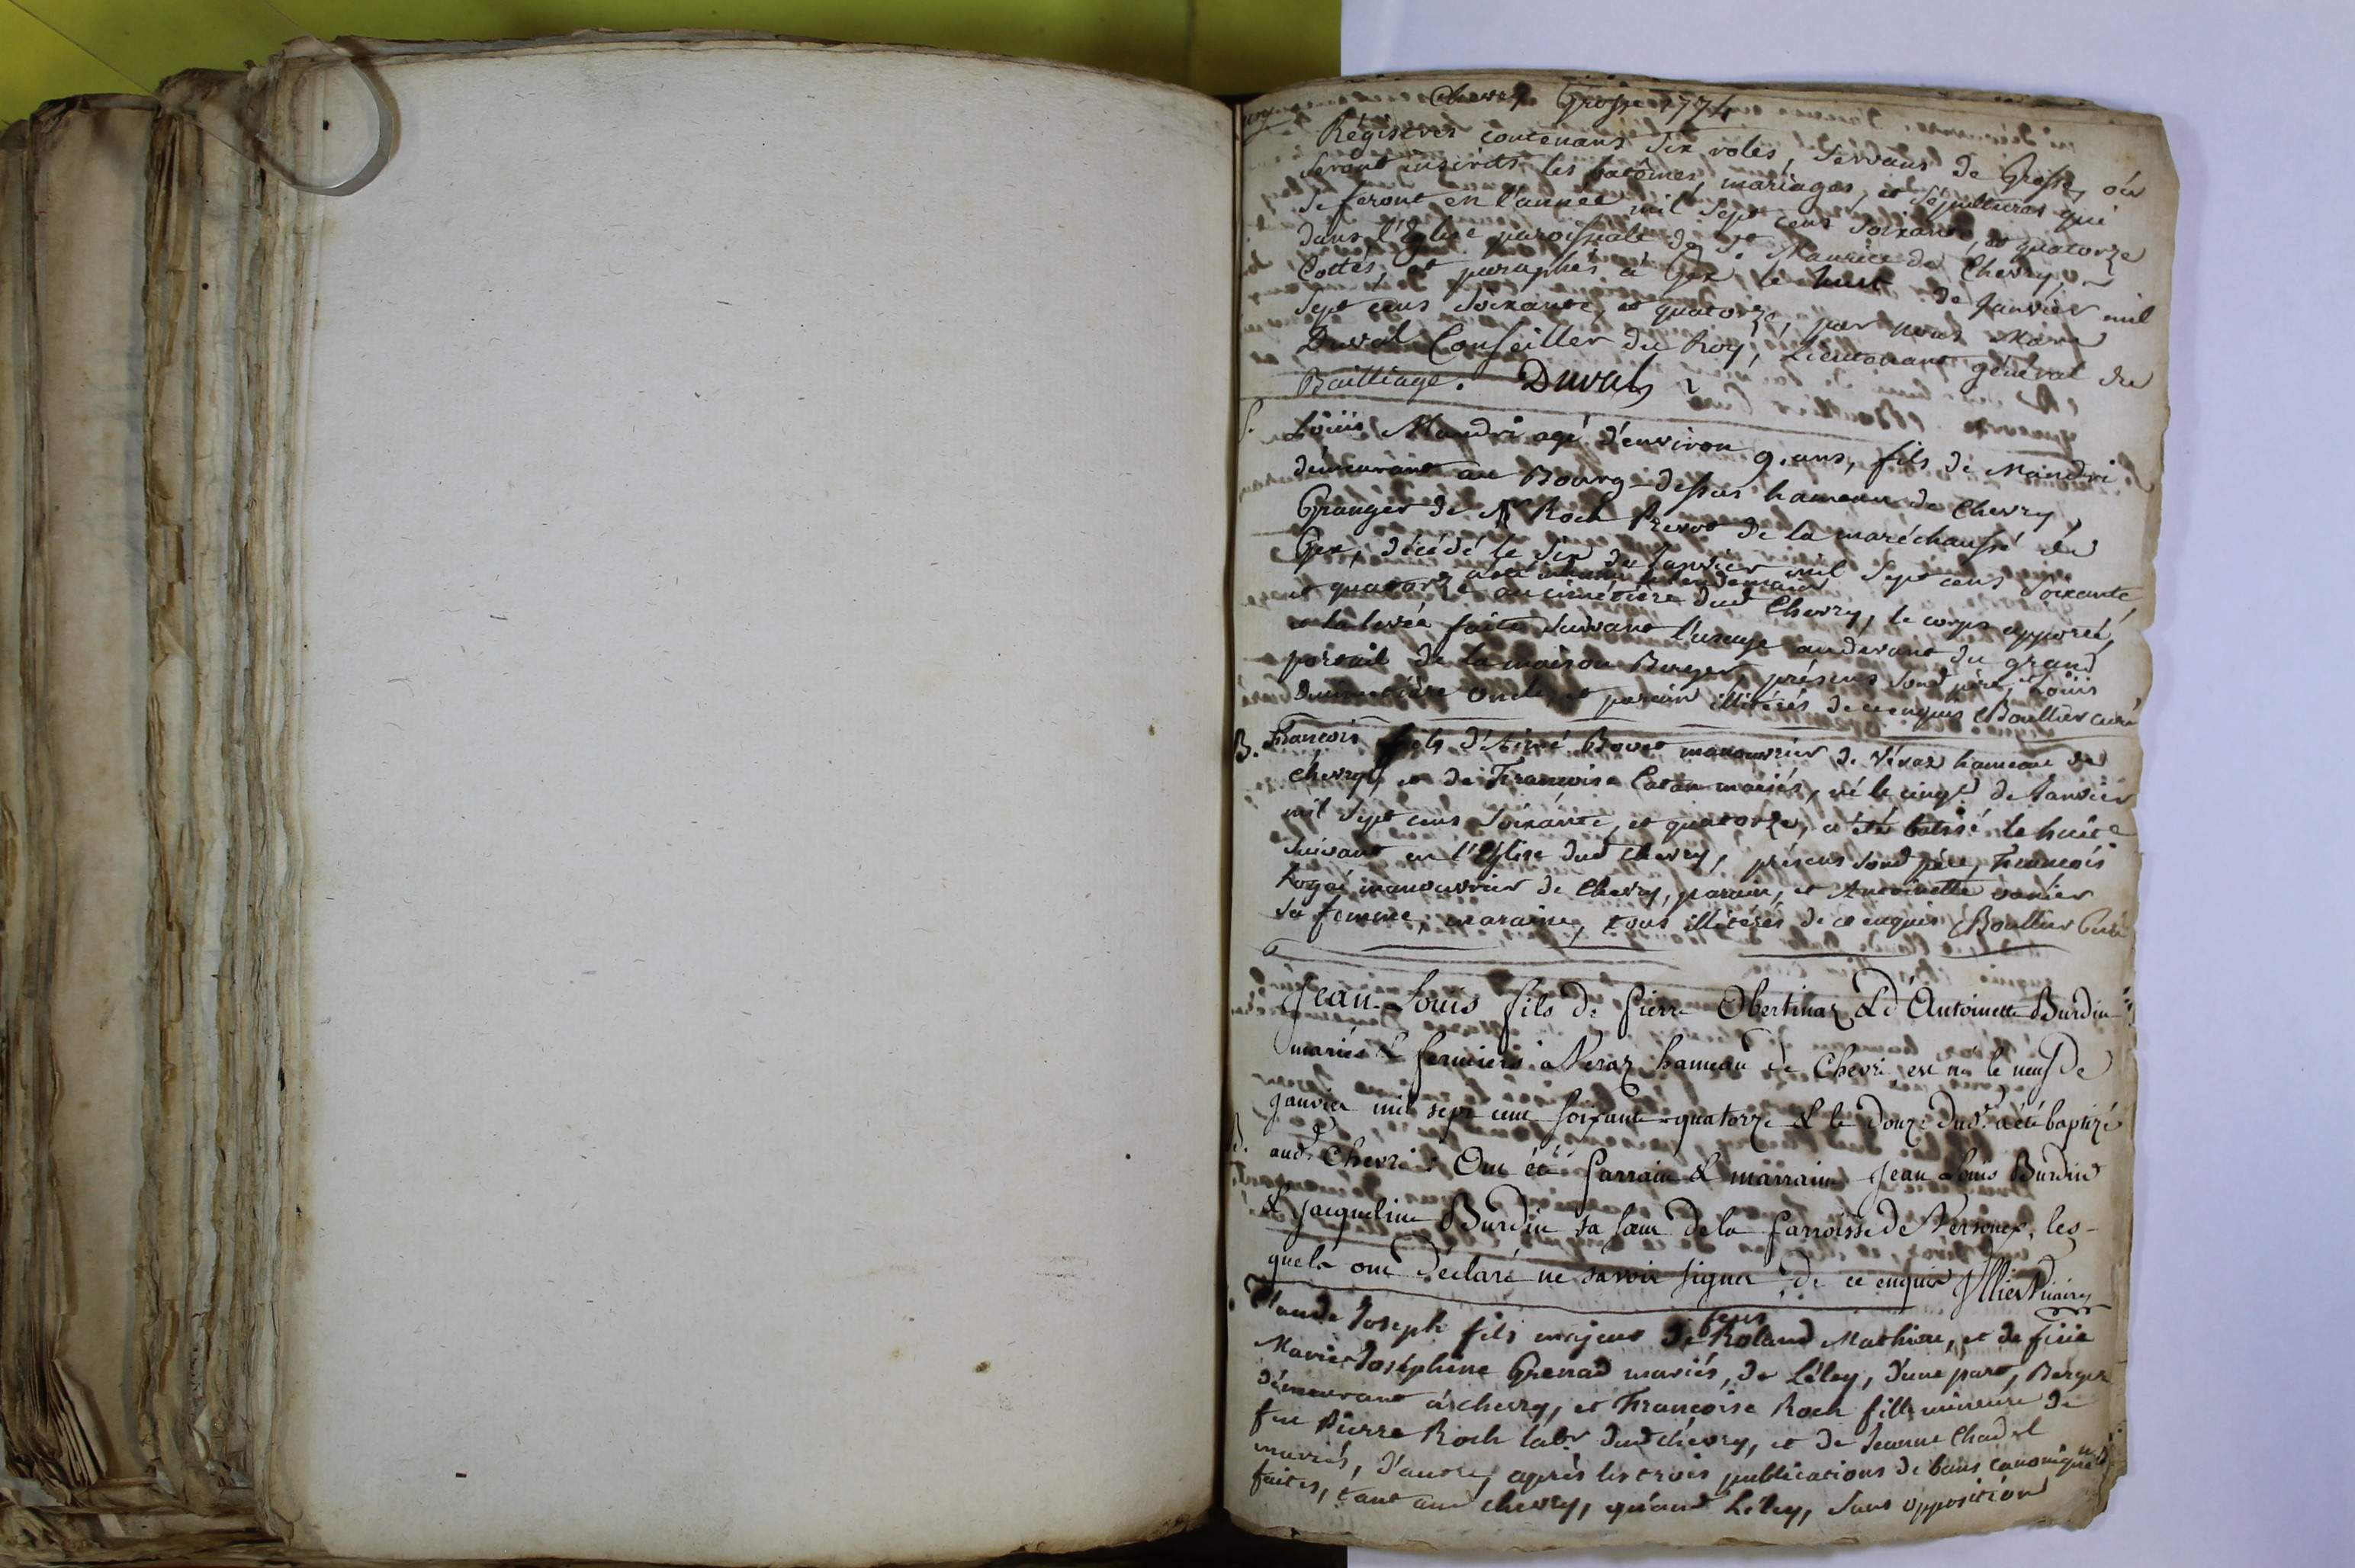 Chevry Grosse 1774
Régistres contenans six roles, servans de Grosse, où
seront inscrits les batêmes, mariages, et sépultures qui
se feront en l'année mil sept cens soixante, et quatorze
dans l'Eglise paroissiale de St. Maurice de Chevry,
Cottés, et paraphés à Gex le huit de Janvier mil
sept cens soixante, et quatorze, par nous Marc
Duval Conseiller du Roy, Lieutenant général du
Bailliage. Duval
S. Loüis Mandri agé d'environ 9. ans, fils de Mandri
demeurant au Bourg-dessus hameau de Chevry,
Granger de Mr Roch Prevot de la maréchaussé de
Gex, décédé le six de Janvier mil sept cens soixante
a été inhumé le lendemain
et quatorze au cimétière dud Chevry, le corps apporté,
et la levée faite suivant l'usage audevant du grand
portail de la maison Berger, présens sond père, Loüis
oncle, et parain illitérés de ce enquis Boullier curé
B. François fils d'Aimé Bovet manouvrier de Véraz hameau de
Chevry, et de Francoise Catan mariés, né le cinq de Janvier
mil sept cens soixante, et quatorze, a été batisé le huit
suivant en l'Eglise dud Chevry, présens sond père, François
manouvrier de Chevry, parain, et Antoinette
sa femme, maraine, tous illitérés de ce enquis Boullier Curé
Jean-Louis fils de Pierre Obertinaz & d'Antoinette Burdin
mariés & fermiers a Veraz hameau de Chevri est né le neuf de
janvier mil sept cent soixante-quatorze & le douze dud. a été baptizé
B. aud. Chevri. Ont été parrain & marraine Jean Louis Burdin
& Jacqueline Burdin sa sœur de la parroisse de Versonex, les-
quels ont déclaré ne savoir signer de ce enquis
Claude Joseph fils majeur de feus Roland Mathieu, et de
Marie Joséphine Grenad mariés, de Léley, d'une part, Berger
demeurant à chevry, et Françoise Roch fille mineure de
feu Pierre Roch labr dud chevry, et de Jeanne Chadel
mariés, d'autre, après les trois publications de bans canoniquemt
faites, tant aud chevry, qu'aud Léley, sans opposition